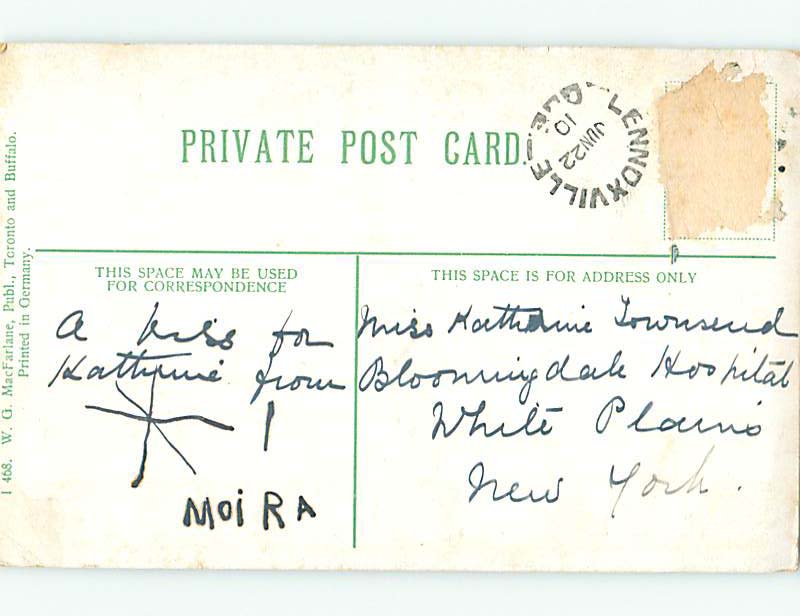 PRIVATE POST CARD.
LENNOXVILLE QUE
10
JUN 22
THIS SPACE MAY BE USED
FOR CORRESPONDENCE
A kiss for
Katherine from
MOiRA
THIS SPACE IS FOR ADDRESS ONLY
Miss Katherine Townsend
Bloomingdale Hospital
White Plains
New York.
I 468. W. G. MacFarlane, Publ., Toronto and Buffalo.
Printed in Germany.